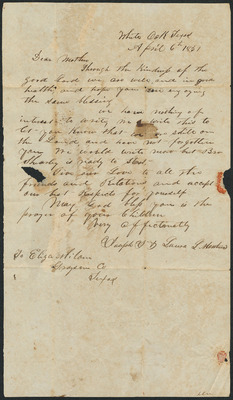 White Oak
April 6th 1861
Dear Mother
Through the kindness of the
good Lord we are well and in good
health and hope you are enjoying
the same blessing
we have nothing of
interest to write, we write this to
let you know that we are still on
the Land and have not forgotten
you We would write more but
is ready to Start.
Give our Love to all the
friends and Relations and accept
our best Respects for yourself
May God bless you is the
prayer of your Children
Very Affectionately
Joseph & Laura
To Eliza
Grayson Co
Texas